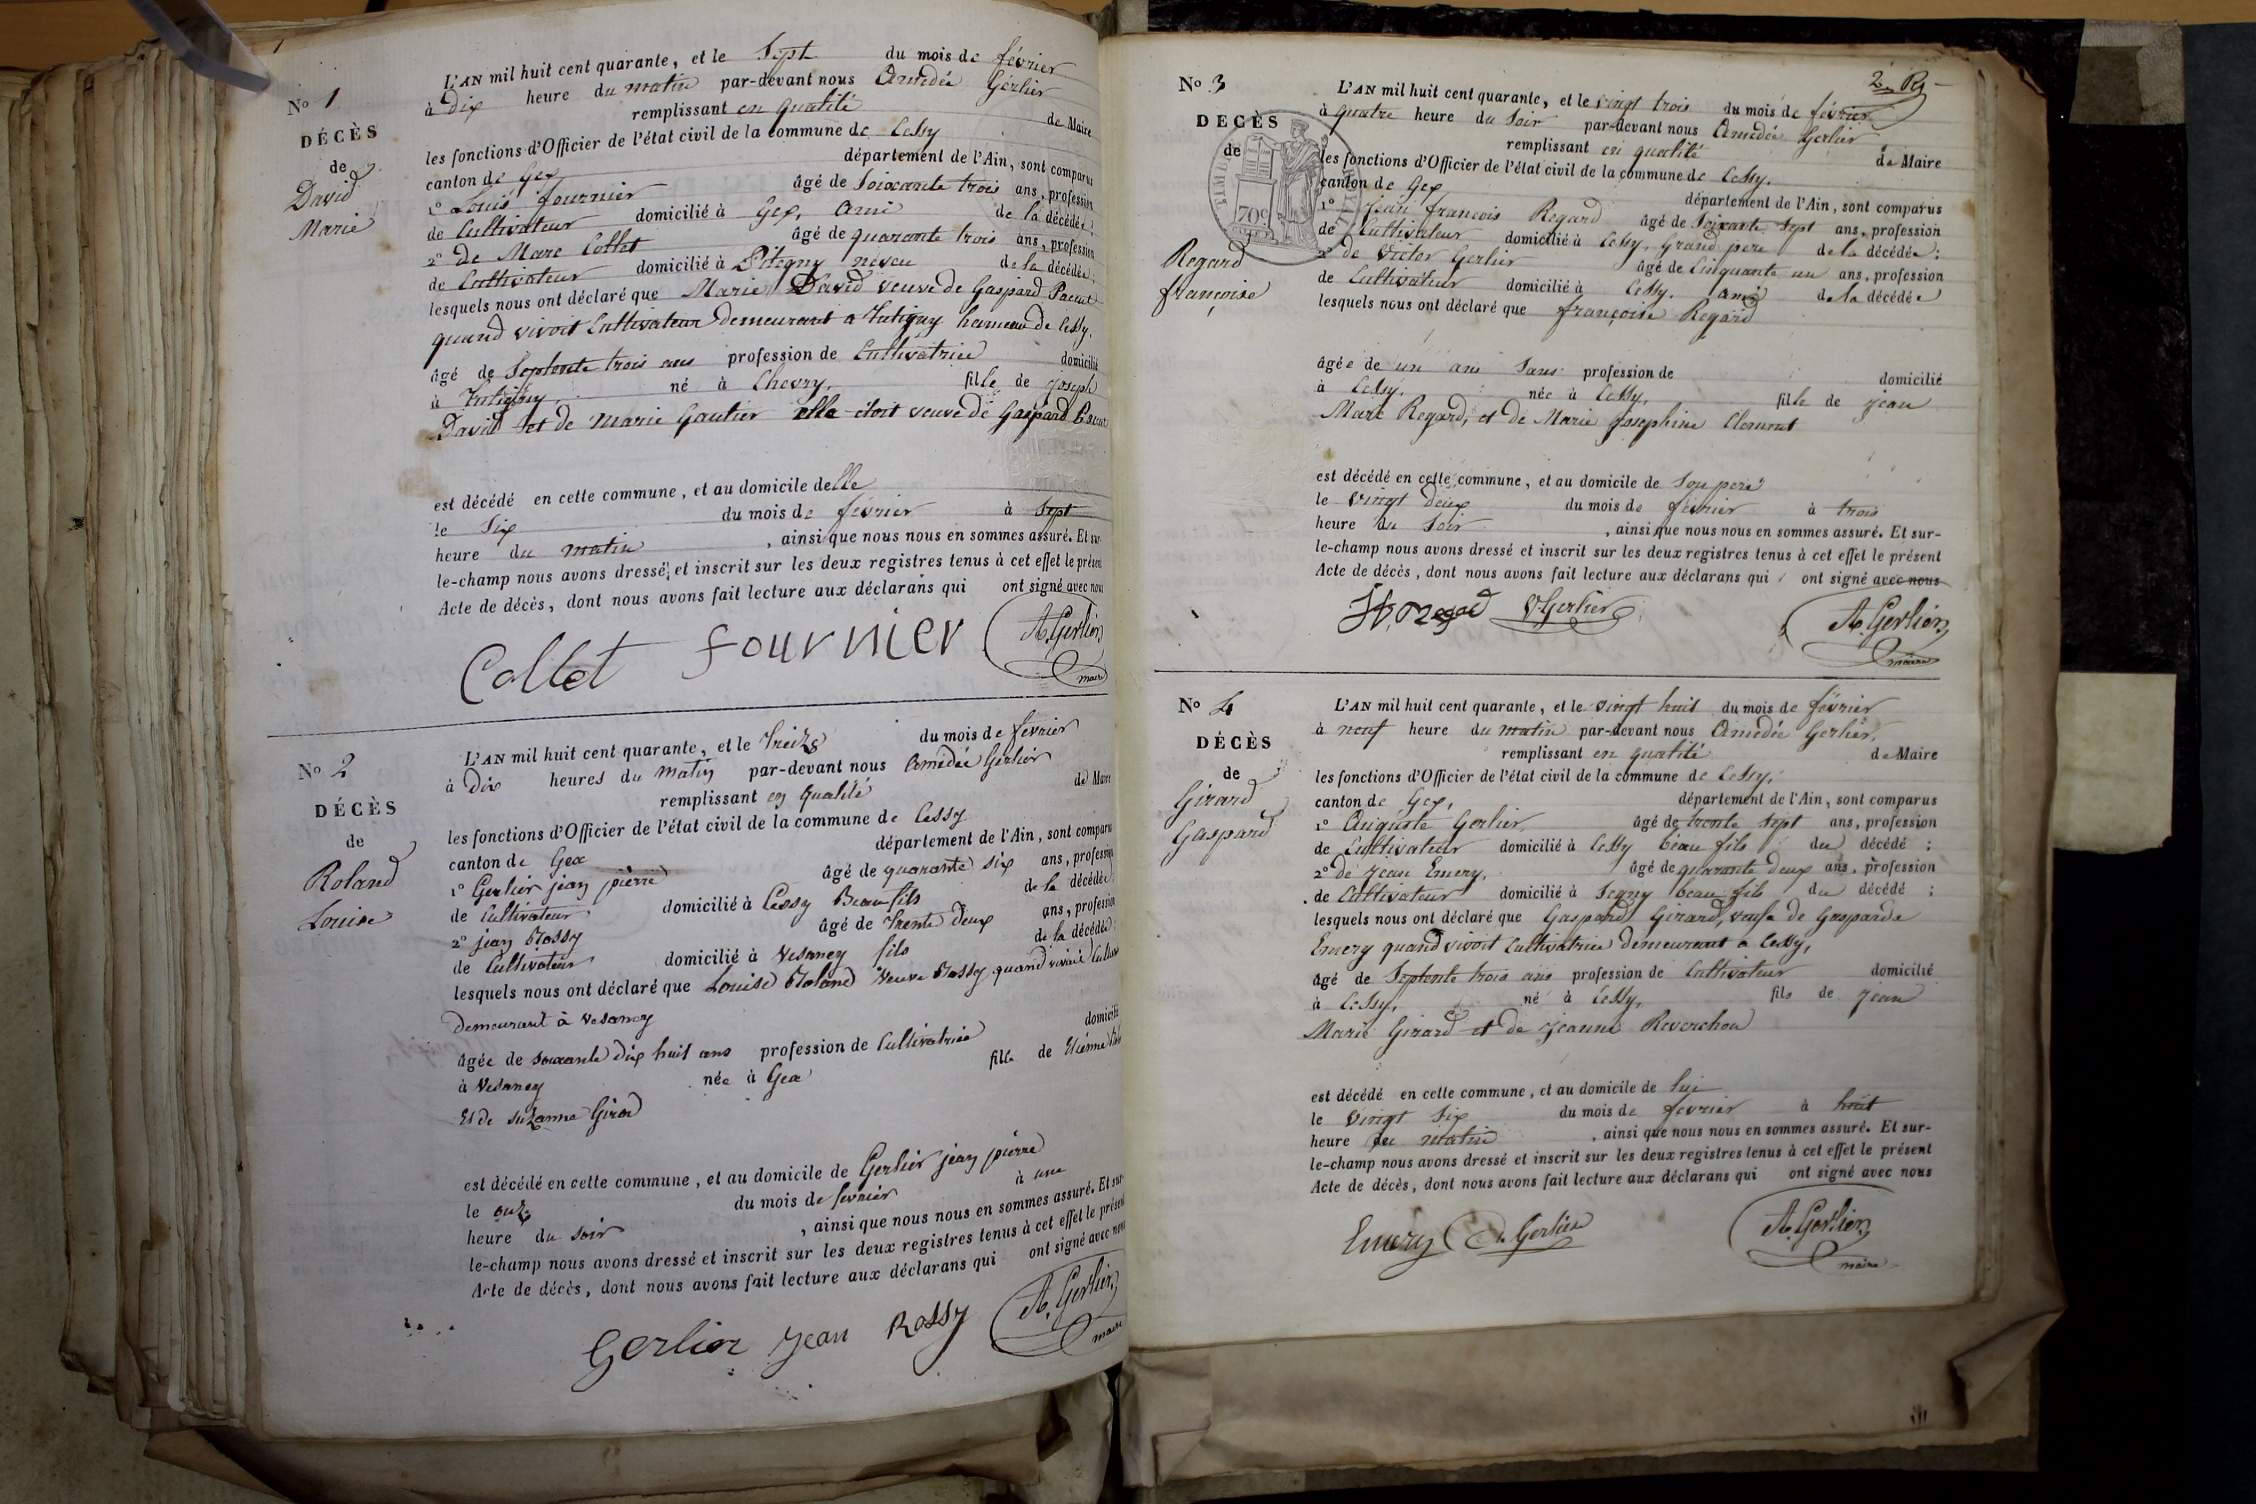 No 1
DÉCÈS
de
David
Marie
L'AN mil huit cent quarante, et le Sept du mois de février
à dix heure du matin par-devant nous Amedée Gerlier
remplissant en qualité de Maire
les fonctions d'Officier de l'état civil de la commune de Cessy
canton de Gex département de l'Ain, sont comparus
1º Louis fournier âgé de Soixante trois ans, profession
de Cultivateur domicilié à Gex, Ami de la décédée;
2º de Marc Collet âgé de quarante trois ans, profession
de Cultivateur domicilié à neveu de la décédée;
lesquels nous ont déclaré que Marie David veuve de Gaspard
quand vivoit Cultivateur demeurant a hameau de Cessy,
âgé de Septente trois ans profession de Cultivatrice domicilié
à né à Chevry, fille de joseph
David et de Marie Gautier elle étoit veuve de Gaspard
est décédé en cette commune, et au domicile delle
le Six du mois de février à Sept
heure du matin, ainsi que nous nous en sommes assuré. Et sur-
le-champ nous avons dressé et inscrit sur les deux registres tenus à cet effet le présent
Acte de décès, dont nous avons fait lecture aux déclarans qui ont signé avec nous
Collet fournier A. Gerlier
maire
No 2
DÉCÈS
de
Roland
Louise
L'AN mil huit cent quarante, et le Treize du mois de février
à Dix heures du matin par-devant nous Amédée Gerlier
remplissant en qualité de Maire
les fonctions d'Officier de l'état civil de la commune de Cessy
canton de Gex département de l'Ain, sont comparus
1º Gerlier jean pierre âgé de quarante six ans, profession
de Cultivateur domicilié à Cessy Beau fils de la décédée
2º jean Rossy âgé de Trente deux ans, profession
de Cultivateur domicilié à Vesancy fils de la décédée;
lesquels nous ont déclaré que Louise Roland Veuve Rossy quand vivait
demeurant à Vesancy
âgée de soixante dix huit ans profession de Cultivatrice domicilié
à Vesancy née à Gex fille de Etienne
Et de suzanne Girod
est décédé en cette commune, et au domicile de Gerlier jean pierre
le onze du mois de février à une
heure du soir, ainsi que nous nous en sommes assuré. Et sur-
le-champ nous avons dressé et inscrit sur les deux registres tenus à cet effet le présent
Acte de décès, dont nous avons fait lecture aux déclarans qui ont signé avec nous
Gerlier Jean Rossy A. Gerlier
maire
No 3
DECÈS
de
Regard
françoise
70c
L'AN mil huit cent quarante, et le vingt trois du mois de février
à quatre heure du Soir par-devant nous Amedée Gerlier
remplissant en qualité de Maire
les fonctions d'Officier de l'état civil de la commune de Cessy.
canton de Gex département de l'Ain, sont comparus
1º Jean francois Regard âgé de Soixante Sept ans, profession
de Cultivateur domicilié à Cessy, Grand pere de la décédée;
2º de Victor Gerlier âgé de Cinquante un ans, profession
de Cultivateur domicilié à Cessy. ami de la décédée
lesquels nous ont déclaré que françoise Regard
âgée de un ans Sans profession de domicilié
à Cessy. née à Cessy, fille de jean
Marc Regard, et de Marie josephine Clement
est décédé en cette commune, et au domicile de Son pere
le vingt deux du mois de février à trois
heure du Soir, ainsi que nous nous en sommes assuré. Et sur-
le-champ nous avons dressé et inscrit sur les deux registres tenus à cet effet le présent
Acte de décès, dont nous avons fait lecture aux déclarans qui ont signé avec nous
V Gerlier A. Gerlier
maire
No 4
DÉCÈS
de
Girard
Gaspard
L'AN mil huit cent quarante, et le vingt huit du mois de février
à neuf heure du matin par-devant nous Amédée Gerlier,
remplissant en qualité de Maire
les fonctions d'Officier de l'état civil de la commune de Cessy,
canton de Gex, département de l'Ain, sont comparus
1º Auguste Gerlier, âgé de trente Sept ans, profession
de Cultivateur domicilié à Cessy beau fils du décédé;
2º de jean Emery, âgé de quarante deux ans, profession
de Cultivateur domicilié à Segny beau fils du décédé;
lesquels nous ont déclaré que Gaspard Girard, veufe de Gasparde
Emery quand vivoit Cultivatrice demeurant a Cessy,
âgé de Septente trois ans profession de Cultivateur domicilié
à Cessy, né à Cessy, fils de jean
Marie Girard et de jeanne Reverchon
est décédé en cette commune, et au domicile de lui
le vingt Six du mois de février à huit
heure du matin, ainsi que nous nous en sommes assuré. Et sur-
le-champ nous avons dressé et inscrit sur les deux registres tenus à cet effet le présent
Acte de décès, dont nous avons fait lecture aux déclarans qui ont signé avec nous
Emery A. Gerlier A. Gerlier
maire